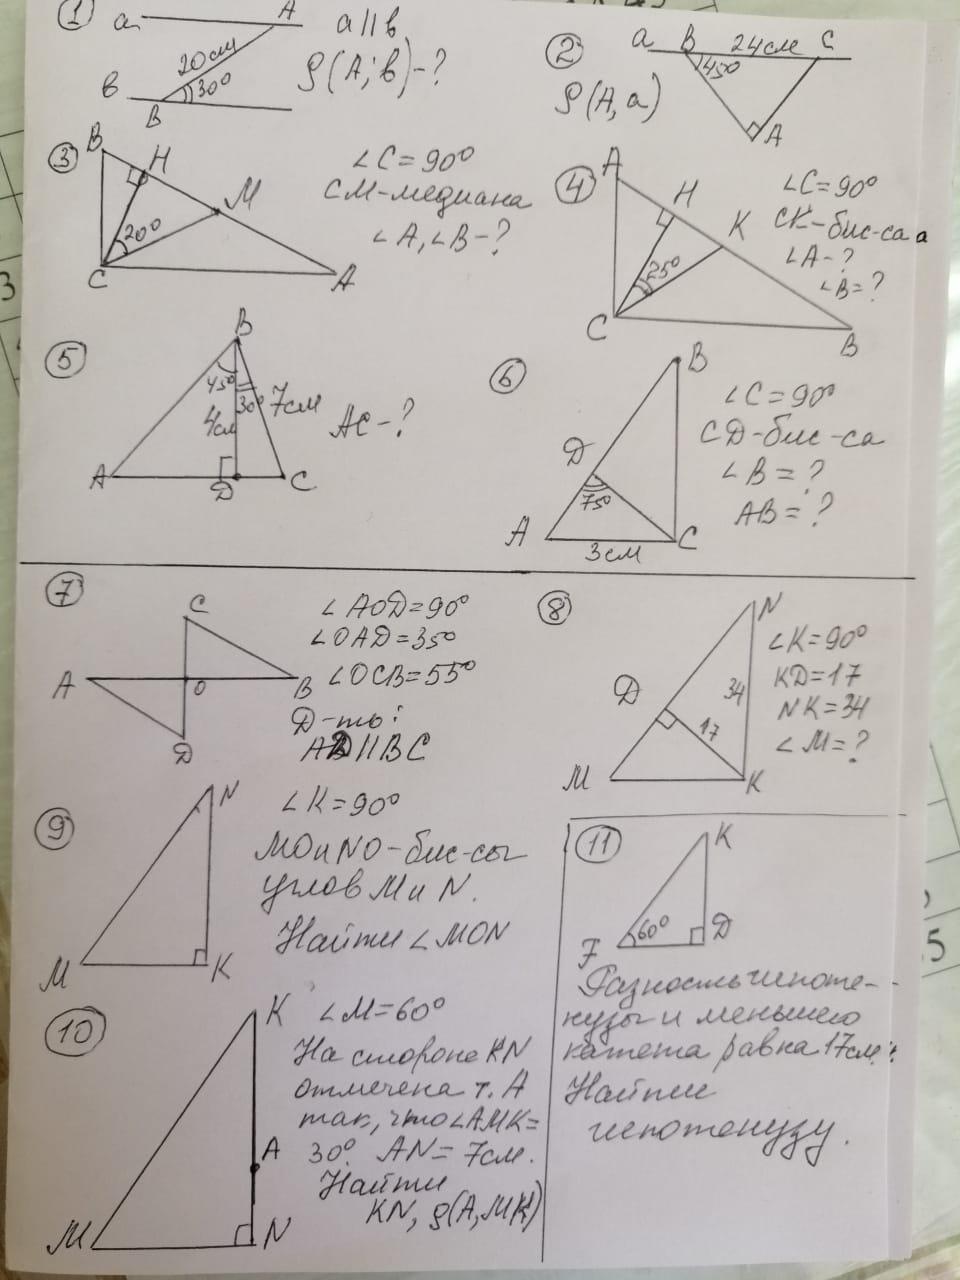 1
a
A
20см
30°
в
B
a||в
ρ(A; в)-?
2
a B 24см C
45°
A
ρ(A, a)
3
B
H
M
20°
C
A
∠C=90°
CM-медиана
∠A, ∠B-?
4
A
H
K
25°
C
B
∠C=90°
CK-бис-са а
∠A-?
∠B=?
5
B
45°
30° 7см
4см
A
Д
C
AC-?
6
B
Д
75°
A
3см
C
∠C=90°
CД-бис-са
∠B=?
AB=?
7
C
A
O
B
Д
∠AOД=90°
∠OAД=35°
∠OCB=55°
Д-ть:
AД||BC
8
N
Д
34
17
M
K
∠K=90°
KД=17
NK=34
∠M=?
9
N
M
K
∠K=90°
MO и NO-бис-сы
углов M и N.
Найти ∠MON
10
K
A
M
N
∠M=60°
На стороне KN
отмечена т. A
так, что ∠AMK=
30°. AN=7см.
Найти
KN, ρ(A, MK)
11
K
60°
F
Д
Разность гипоте-
нузы и меньшего
катета равна 17см.
Найти
гипотенузу.